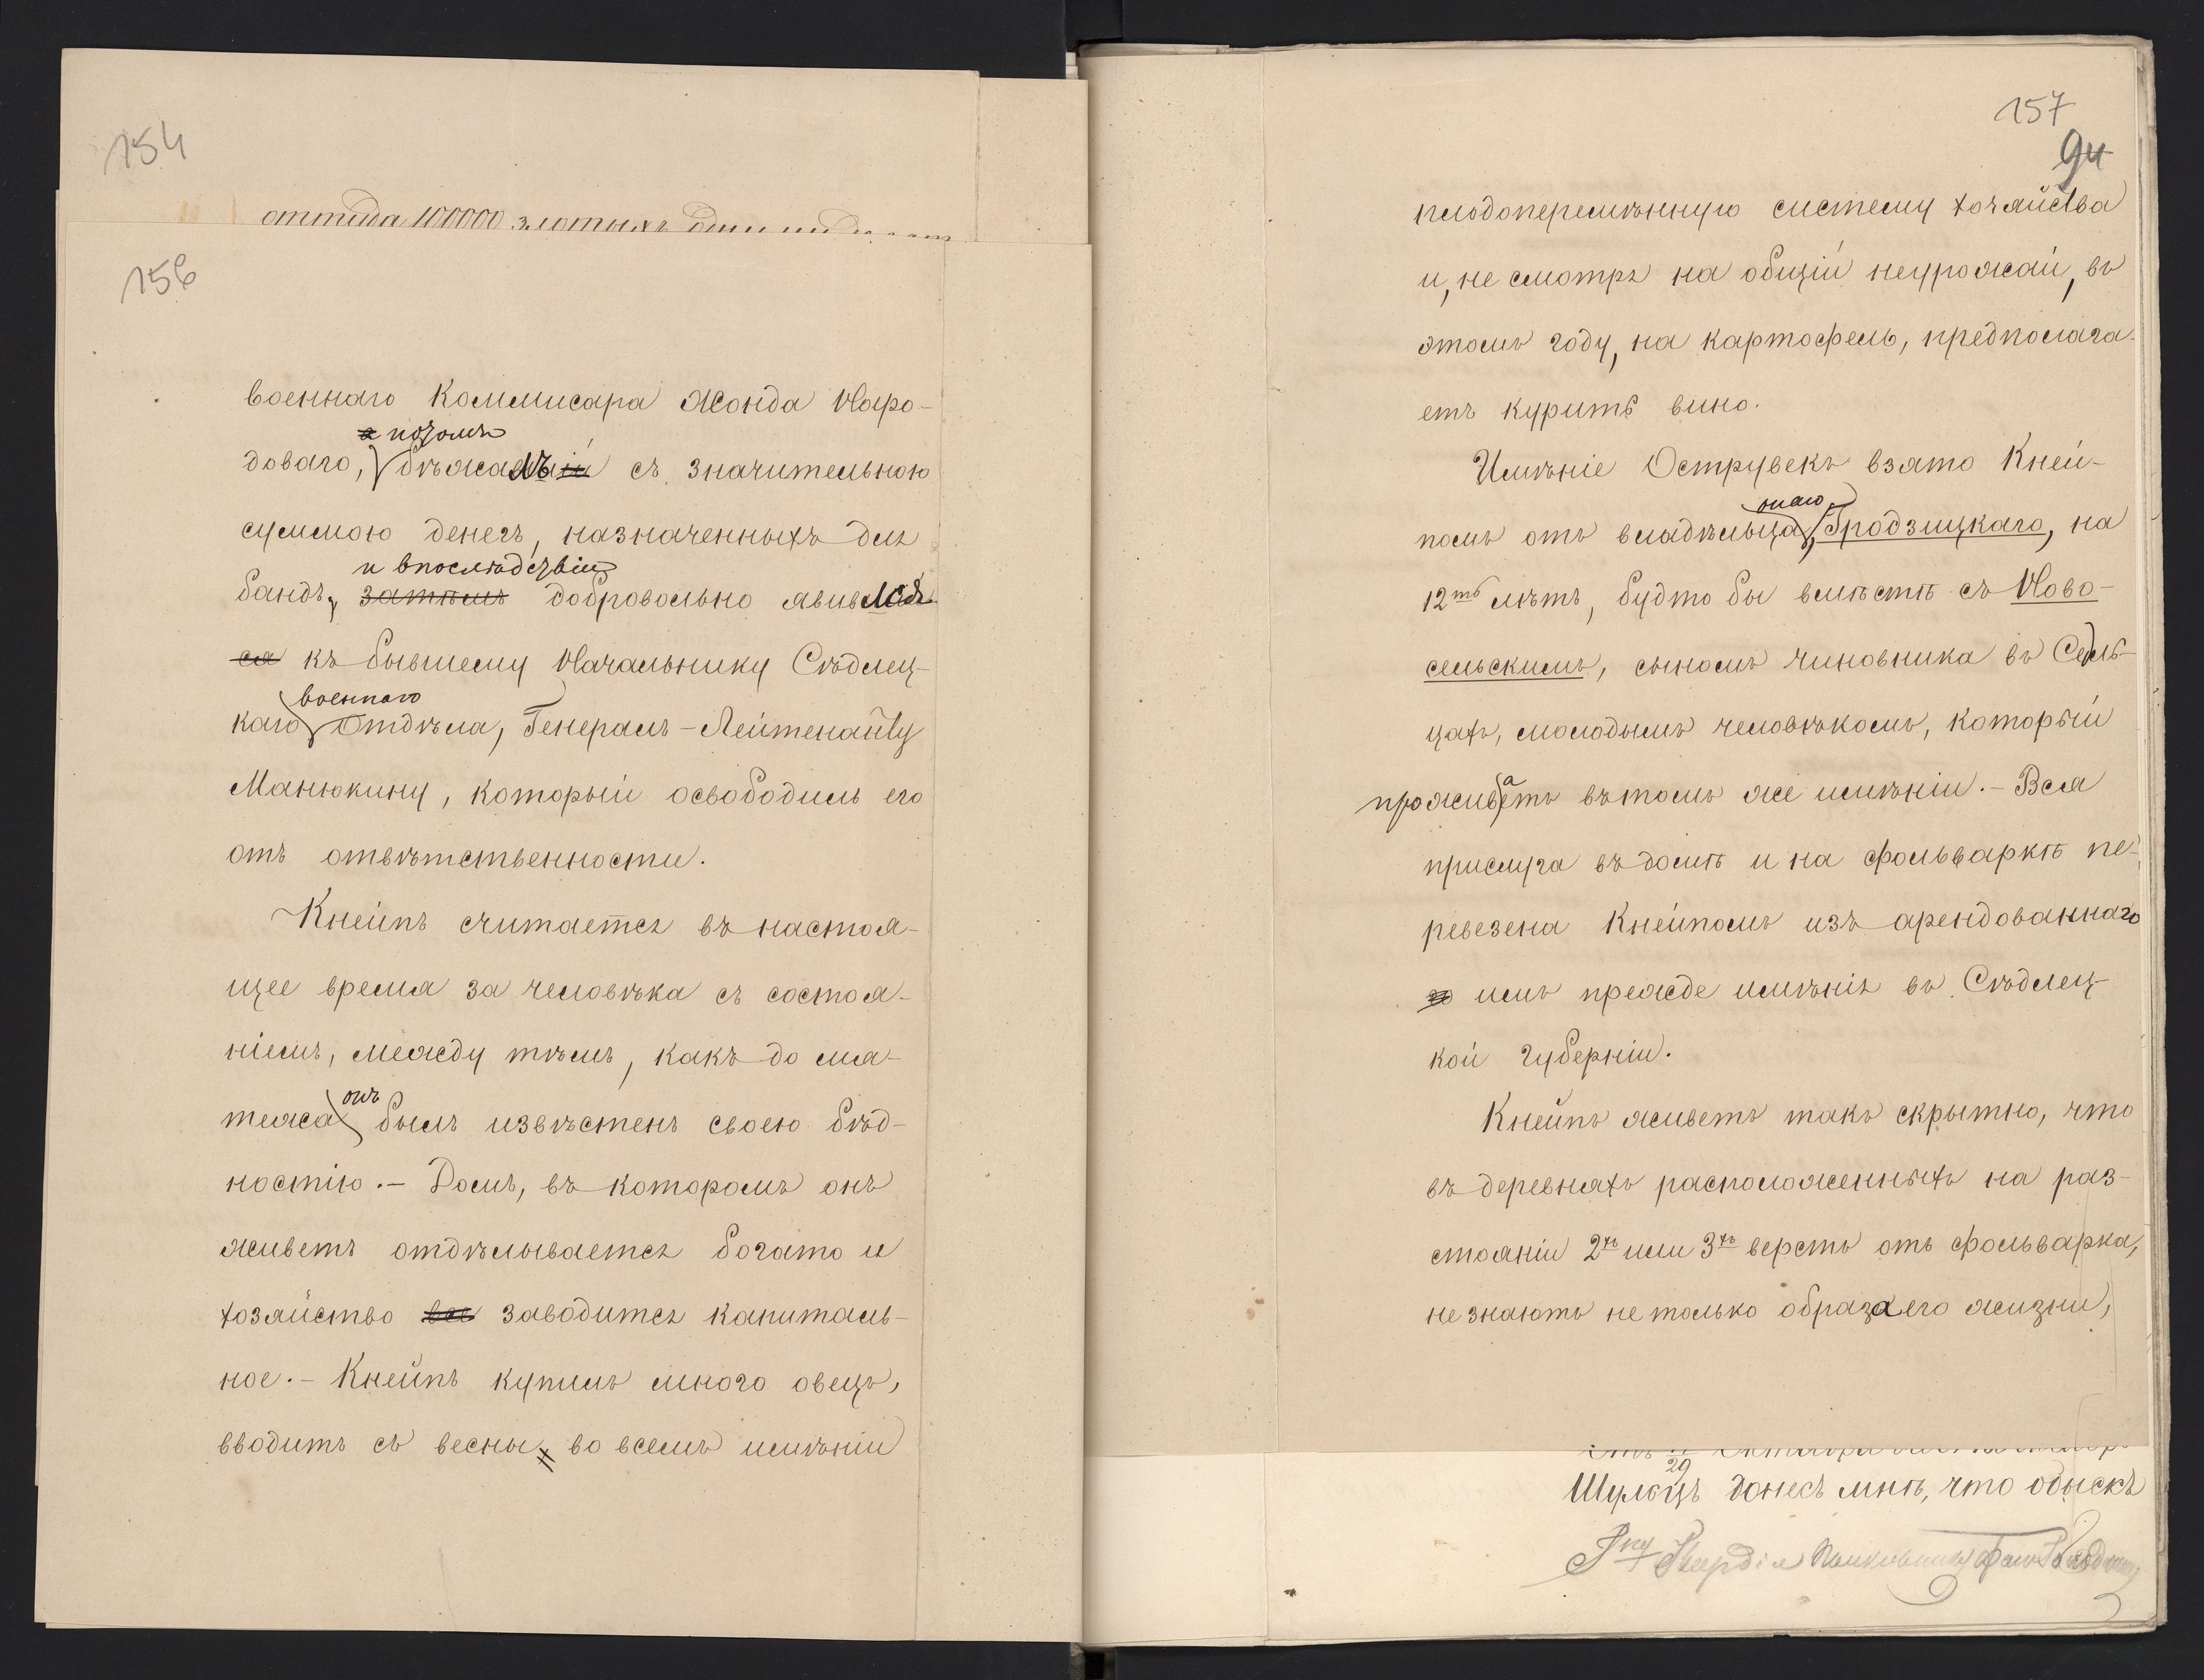 154
оттуда 100000 злотыхъ
156
военнаго Коммисара Жонда Наро-
а позомъ
доваго, бѣжалъ съ значительною
суммою денегъ, назначенныхъ для
и впослѣдствіи
бандъ, затѣмъ добровольно явился
ся къ бывшему Начальнику Сѣдлец-
военнаго
каго Отдѣла, Генералъ-Лейтенанту
Манюкину, который освободилъ его
отъ отвѣтственности.
Кнейпъ считается въ настоя-
щее время за человѣка съ состоя-
ніемъ, между тѣмъ, какъ до мя-
онъ
тежа былъ извѣстенъ своею бѣд-
ностію.- Домъ, въ которомъ онъ
живетъ отдѣлывается богато и
хозяйство все заводится капиталь-
ное.- Кнейпъ купилъ много овецъ,
вводитъ съ весны, во всемъ имѣніи
157
94
плодоперемѣнную систему хозяйства
и, не смотря на общій неурожай, въ
этомъ году, на картофель, предполага-
етъ курить вино.
Имѣніе Острувекъ взято Кней-
онаго
помъ отъ владѣльца, Гродзицкаго, на
12ть лѣтъ, будто бы вмѣстѣ съ Ново-
сельскимъ, сыномъ чиновника въ Седль-
цахъ, молодымъ человѣкомъ, который
а
проживетъ въ томъ же имѣніи.- Вся
прислуга въ домѣ и на фольваркѣ пе-
ревезена Кнейпомъ изъ арендованнаго
го имъ прежде имѣнія въ Сѣдлец-
кой Губерніи.
Кнейпъ живетъ такъ скрытно, что
въ деревняхъ расположенныхъ на раз-
стояніи 2хъ или 3хъ верстъ отъ фольварка,
не знаютъ не только образа его жизни,
29
Шульцъ донесъ мнѣ, что обыскъ